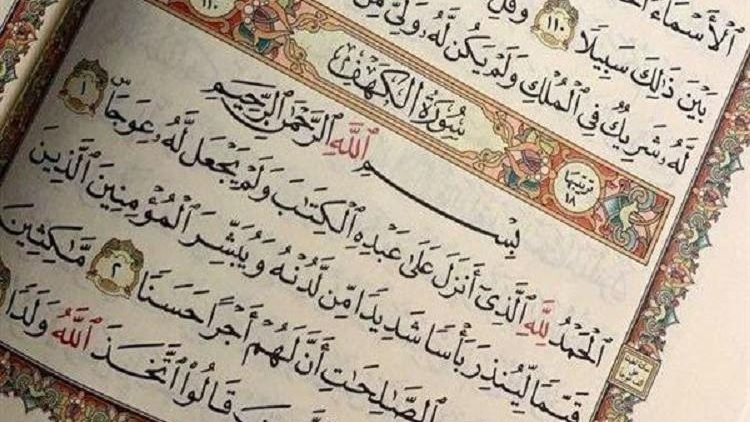 ٱلْأَسْمَآءُ
بَيْنَ ذَٰلِكَ سَبِيلًا ١١٠ وَقُلِ
لَّهُۥ شَرِيكٌ فِى ٱلْمُلْكِ وَلَمْ يَكُن لَّهُۥ وَلِىٌّ مِّنَ
ترتيبها ١٨ سُورَةُ الكَهْفِ ١١٠
بِسْمِ ٱللَّهِ ٱلرَّحْمَٰنِ ٱلرَّحِيمِ
ٱلْحَمْدُ لِلَّهِ ٱلَّذِىٓ أَنزَلَ عَلَىٰ عَبْدِهِ ٱلْكِتَٰبَ وَلَمْ يَجْعَل لَّهُۥ عِوَجَاۜ ١
قَيِّمًا لِّيُنذِرَ بَأْسًا شَدِيدًا مِّن لَّدُنْهُ وَيُبَشِّرَ ٱلْمُؤْمِنِينَ ٱلَّذِينَ
ٱلصَّٰلِحَٰتِ أَنَّ لَهُمْ أَجْرًا حَسَنًا ٢ مَّٰكِثِينَ
قَالُوا۟ ٱتَّخَذَ ٱللَّهُ وَلَدًا